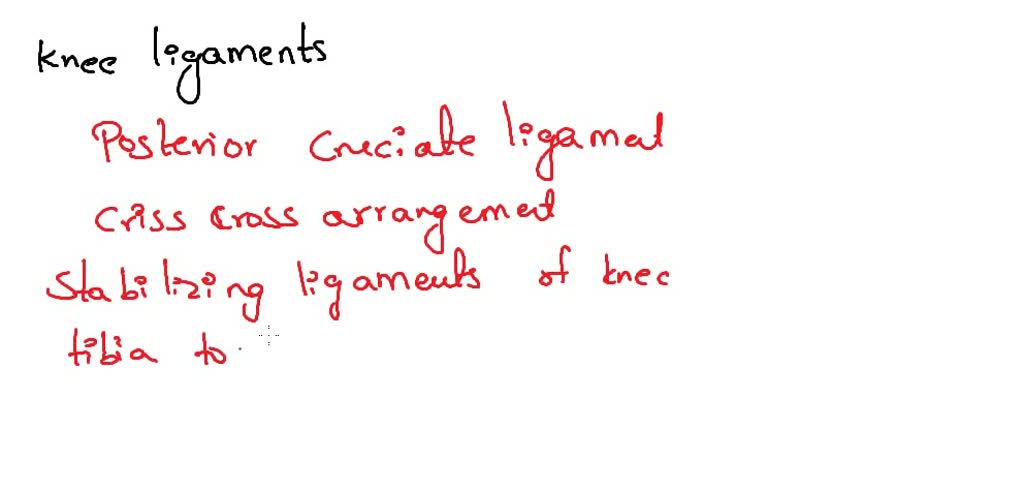 knee ligaments
Posterior Cruciate ligamet
criss cross arrangemet
Stabilizing ligaments of knee
tibia to